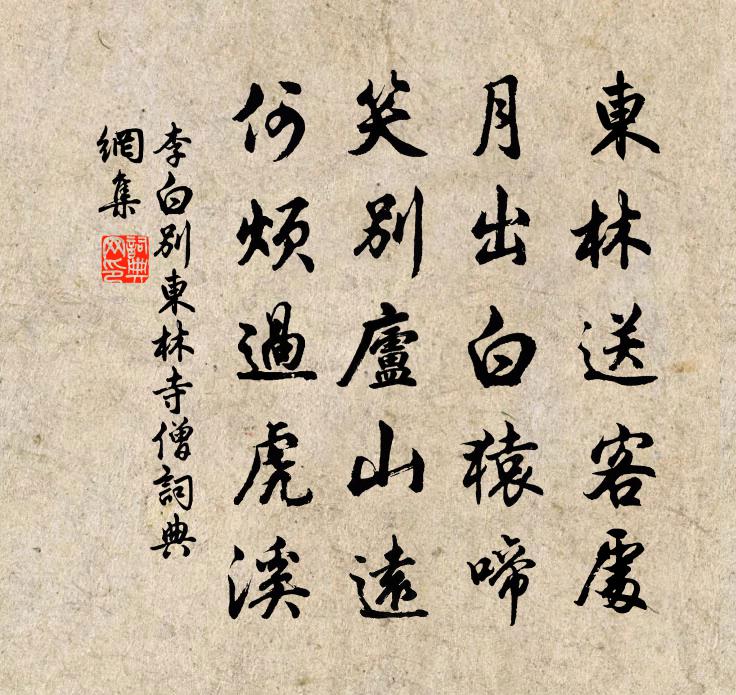 東林送客處
月出白猿啼
笑別廬山遠
何煩過虎溪
李白別東林寺僧詞典
網集
詞典
网印